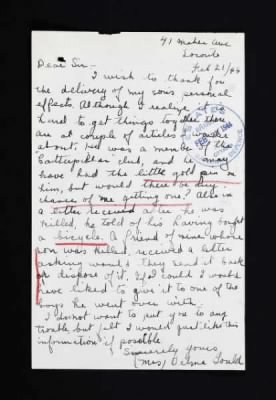 41 Maher Ave
Toronto
Feb 21/44
Dear Sir-
I wish to thank for
the delivery of my son's personal
effects. Although I realize it is
hard to get things together there
are a couple of articles I wonder
about. Ted was a member of the
Catterpillar club, and he may
have had the little gold pin on
him, but would there be any
chance of me getting one? Also in
a letter received after he was
killed, he told of his having bought
a bicycle. A friend of mine whose
son was killed, received a letter
asking would they send it back
or dispose of it. If I could I would
have liked to give it to one of the
boys he went over with.
I do not want to put you to any
trouble but felt I would just like this
information if possible
Sincerely yours
(Mrs) Gould